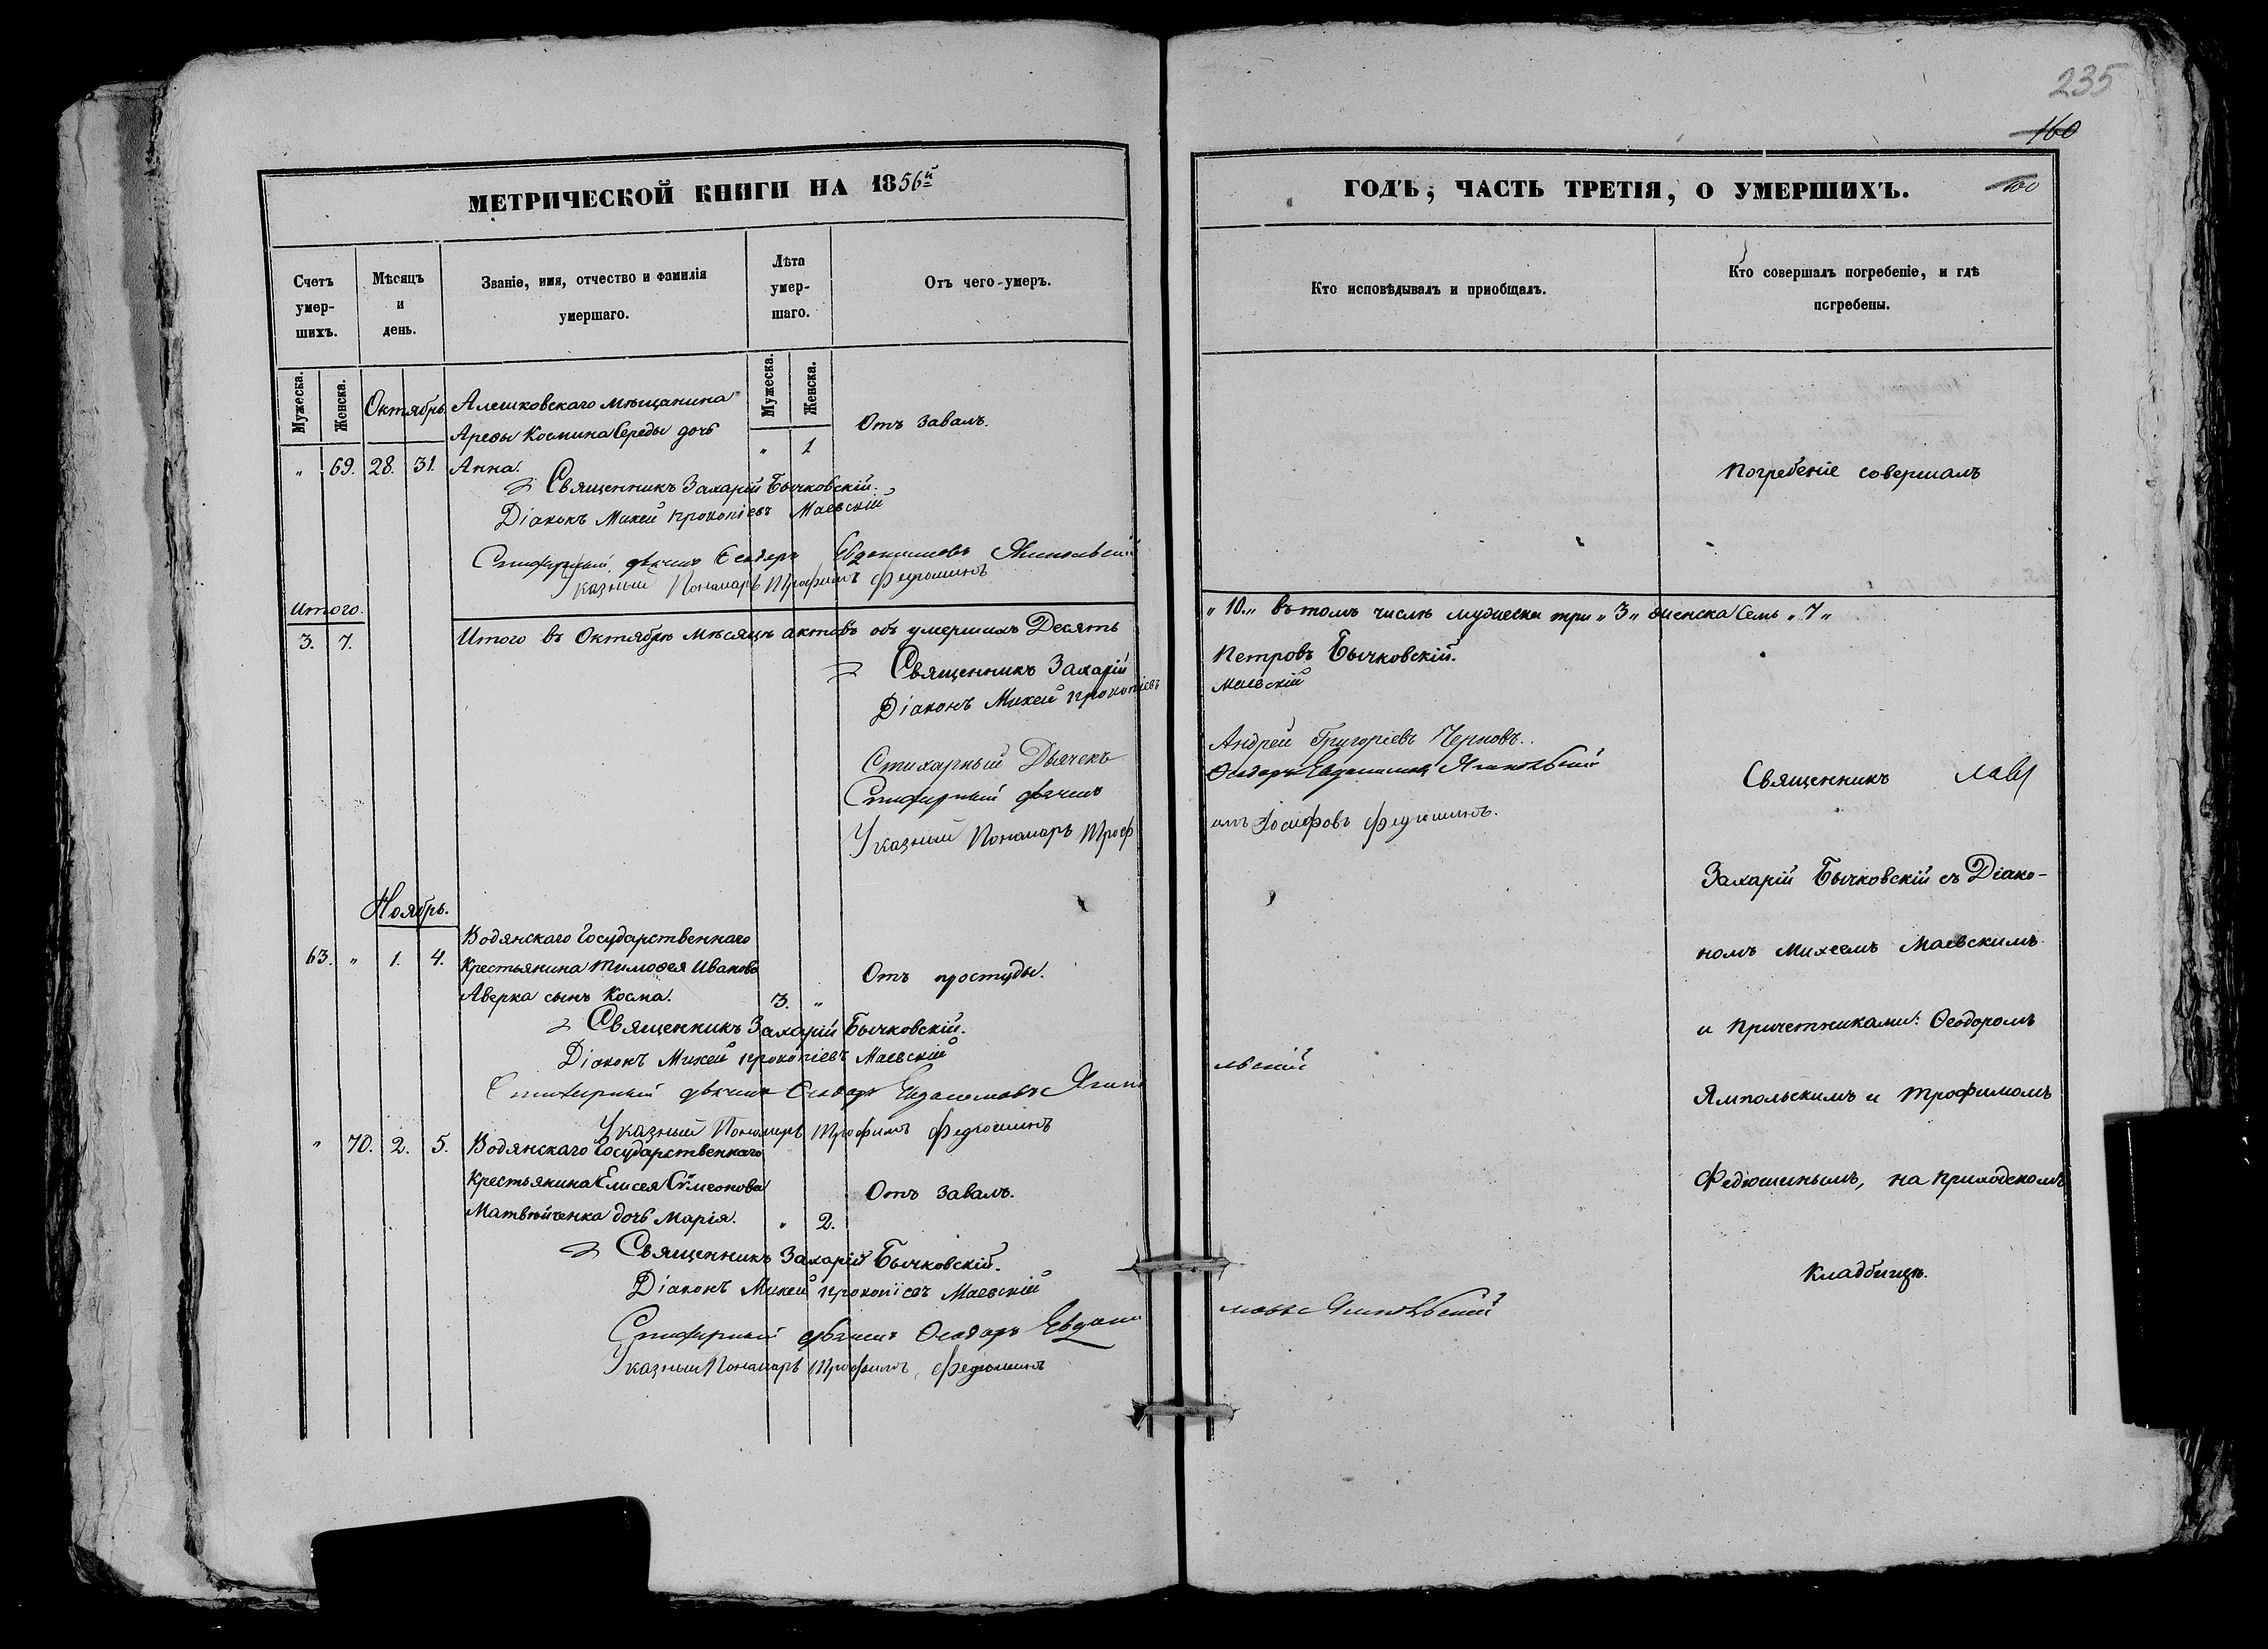 235
160
100
МЕТРИЧЕСКОЙ КНИГИ НА 1856й
Счетъ умер-шихъ.
Мѣсяцъ и день.
Званіе, имя, отчество и фамилія умершаго.
Лѣта умер-шаго.
Отъ чего умеръ.
Мужеска.
Женска.
Мужеска.
Женска.
Октябрь.
Алешковскаго мѣщанина
Арефы Космина Середы дочь
" 69. 28. 31. Анна. " 1 Отъ завалъ.
Священникъ Захарій Бычковскій.
Діаконъ Михей Прокопіевъ Маевскій
Стихарный дьячекъ Ѳеодоръ Евдокимовъ Ямпольскій
Указный Пономарь Трофимъ Федюшинъ
Итого.
3. 7. Итого въ Октябрѣ мѣсяцѣ актовъ объ умершихъ Десять
Священникъ Захарій
Діаконъ Михей Прокопіевъ
Стихарный Дьячекъ
Стихарный дьячекъ
Указный Пономарь Троф
Ноябрь.
Водянскаго Государственнаго
63. " 1. 4. Крестьянина Тимоѳея Иванова
Аверка сынъ Косма. 3. " Отъ простуды.
Священникъ Захарій Бычковскій.
Діаконъ Михей Прокопіевъ Маевскій
Стихарный дьячекъ Ѳеодоръ Евдокимовъ Ямпо
Указный Пономарь Трофимъ Федюшинъ
" 70. 2. 5. Водянскаго Государственнаго
Крестьянина Елисея Сѵмеонова
Матвѣйченка дочь Марія. " 2. Отъ завалъ.
Священникъ Захарій Бычковскій.
Діаконъ Михей Прокопіевъ Маевскій
Стихарный дьячекъ Ѳеодоръ Евдоки
Указный Пономарь Трофимъ Федюшинъ
ГОДЪ, ЧАСТЬ ТРЕТІЯ, О УМЕРШИХЪ.
Кто исповѣдывалъ и приобщалъ.
Кто совершалъ погребеніе, и гдѣ погребены.
" 10. " въ томъ числѣ мужеска три " 3 " женска Семь " 7 "
Петровъ Бычковскій.
Маевскій
Андрей Григоріевъ Черновъ.
Ѳеодоръ Евдокимовъ Ямпольскій
имъ Іосифовъ Федюшинъ.
льскій
мовъ Ямпольскій
Погребеніе совершалъ
Священникъ
Захарій Бычковскій съ Діако-
номъ Михеемъ Маевскимъ
и Причетниками: Ѳеодоромъ
Ямпольскимъ и Трофимомъ
Федюшинымъ, на приходскомъ
Кладбищѣ.